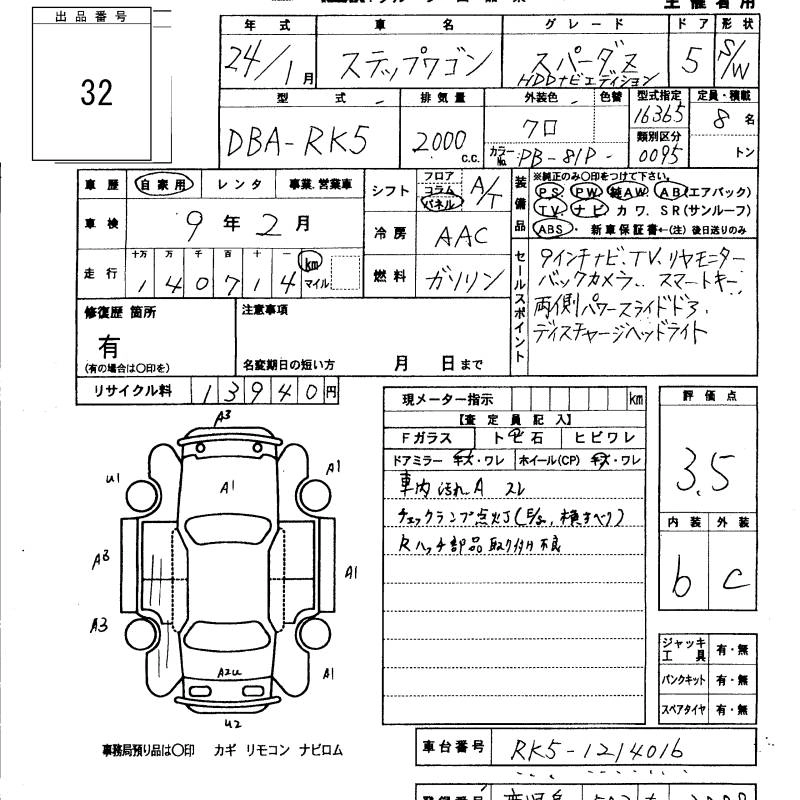 出品番号
32
年式 車名 グレード ドア 形状
24/1月 ステップワゴン スパーダZ HDDナビエディション 5 S/W
型式 排気量 外装色 色替 型式指定 定員・積載
DBA-RK5 2000 c.c. クロ 16365 8名
カラーNo. PB-81P 類別区分 0095 トン
車歴 自家用 レンタ 事業、営業車
車検 9年2月
走行 十万 万 千 百 十 一 km マイル
140714
シフト フロア コラム パネル A/T
冷房 AAC
燃料 ガソリン
装備品 ※純正のみ〇印をつけて下さい。
PS PW 純AW AB(エアバック)
TV. ナビ カワ. SR(サンルーフ)
ABS・ 新車保証書←(注)後日送りのみ
セールスポイント
9インチナビ、TV、リヤモニター
バックカメラ、スマートキー
両側パワースライドドア
ディスチャージヘッドライト
修復歴 箇所 注意事項
有
(有の場合は〇印を) 名変期日の短い方 月 日まで
リサイクル料 13940円
現メーター指示 km
【査定員記入】
Fガラス トビ石 ヒビワレ
ドアミラー キズ・ワレ ホイール(CP) キズ・ワレ
車内 汚れA スレ
チェックランプ点灯(E/g、横すべり)
Rハッチ部品取り付け不良
評価点
3.5
内装 外装
b c
ジャッキ工具 有・無
パンクキット 有・無
スペアタイヤ 有・無
A3
U1 A1 A1
A3 A1
A3 A2U A1
U2
事務局預り品は〇印 カギ リモコン ナビロム
車台番号 RK5-1214016